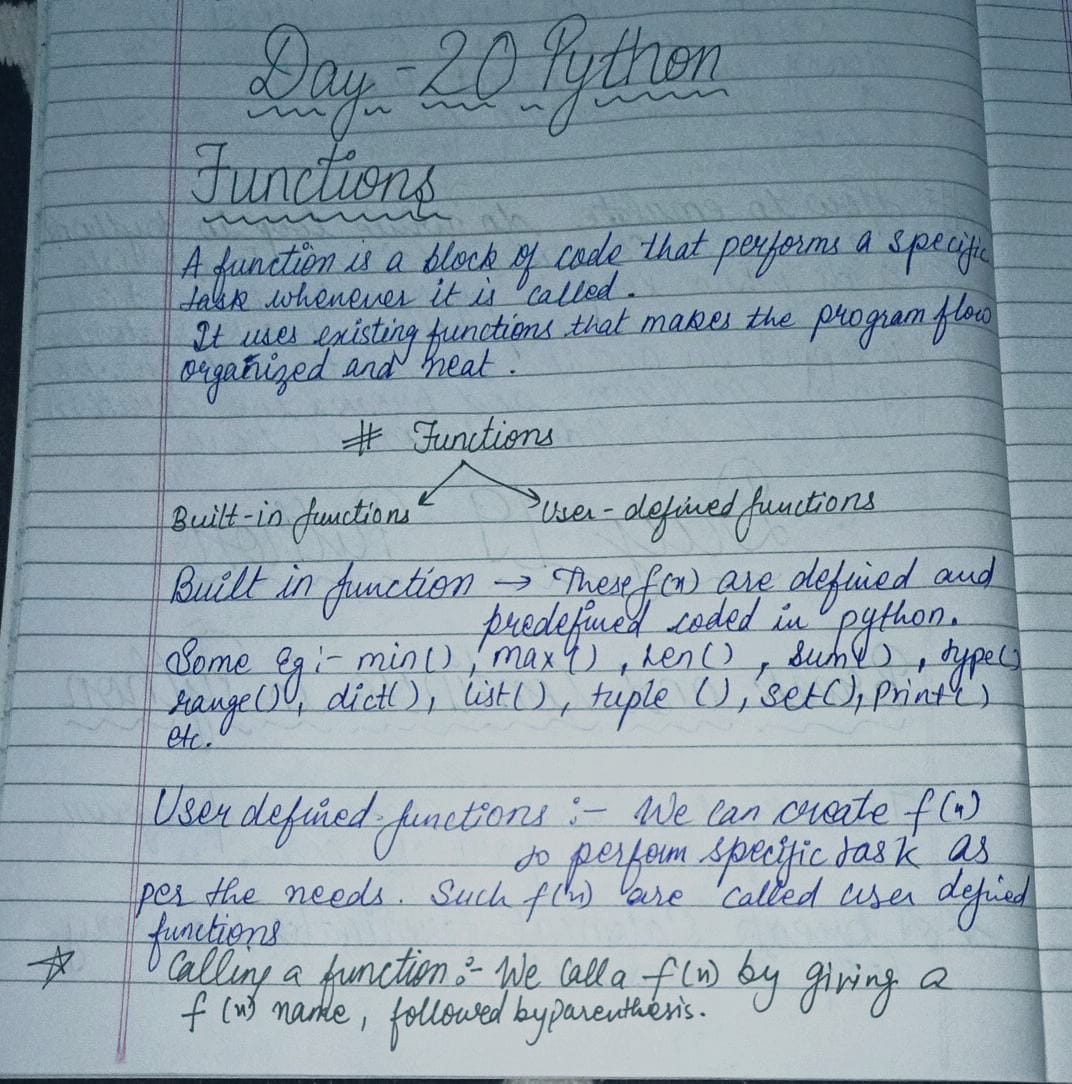 Day-20 Python
Functions
A function is a block of code that performs a specific
task whenever it is called.
It uses existing functions that makes the program flow
organized and neat.
# Functions
Built-in functions User-defined functions
Built in function → These f(n) are defined and
predefined coded in python.
Some Eg:- min(), max(), Len(), sum(), type()
range(), dict(), list(), tuple (), set(), print()
etc.
User defined functions :- We can create f(n)
to perform specific task as
per the needs. Such f(n) are called user defied
functions
☆ Calling a function:- We call a f(n) by giving a
f(n) name, followed by parenthesis.